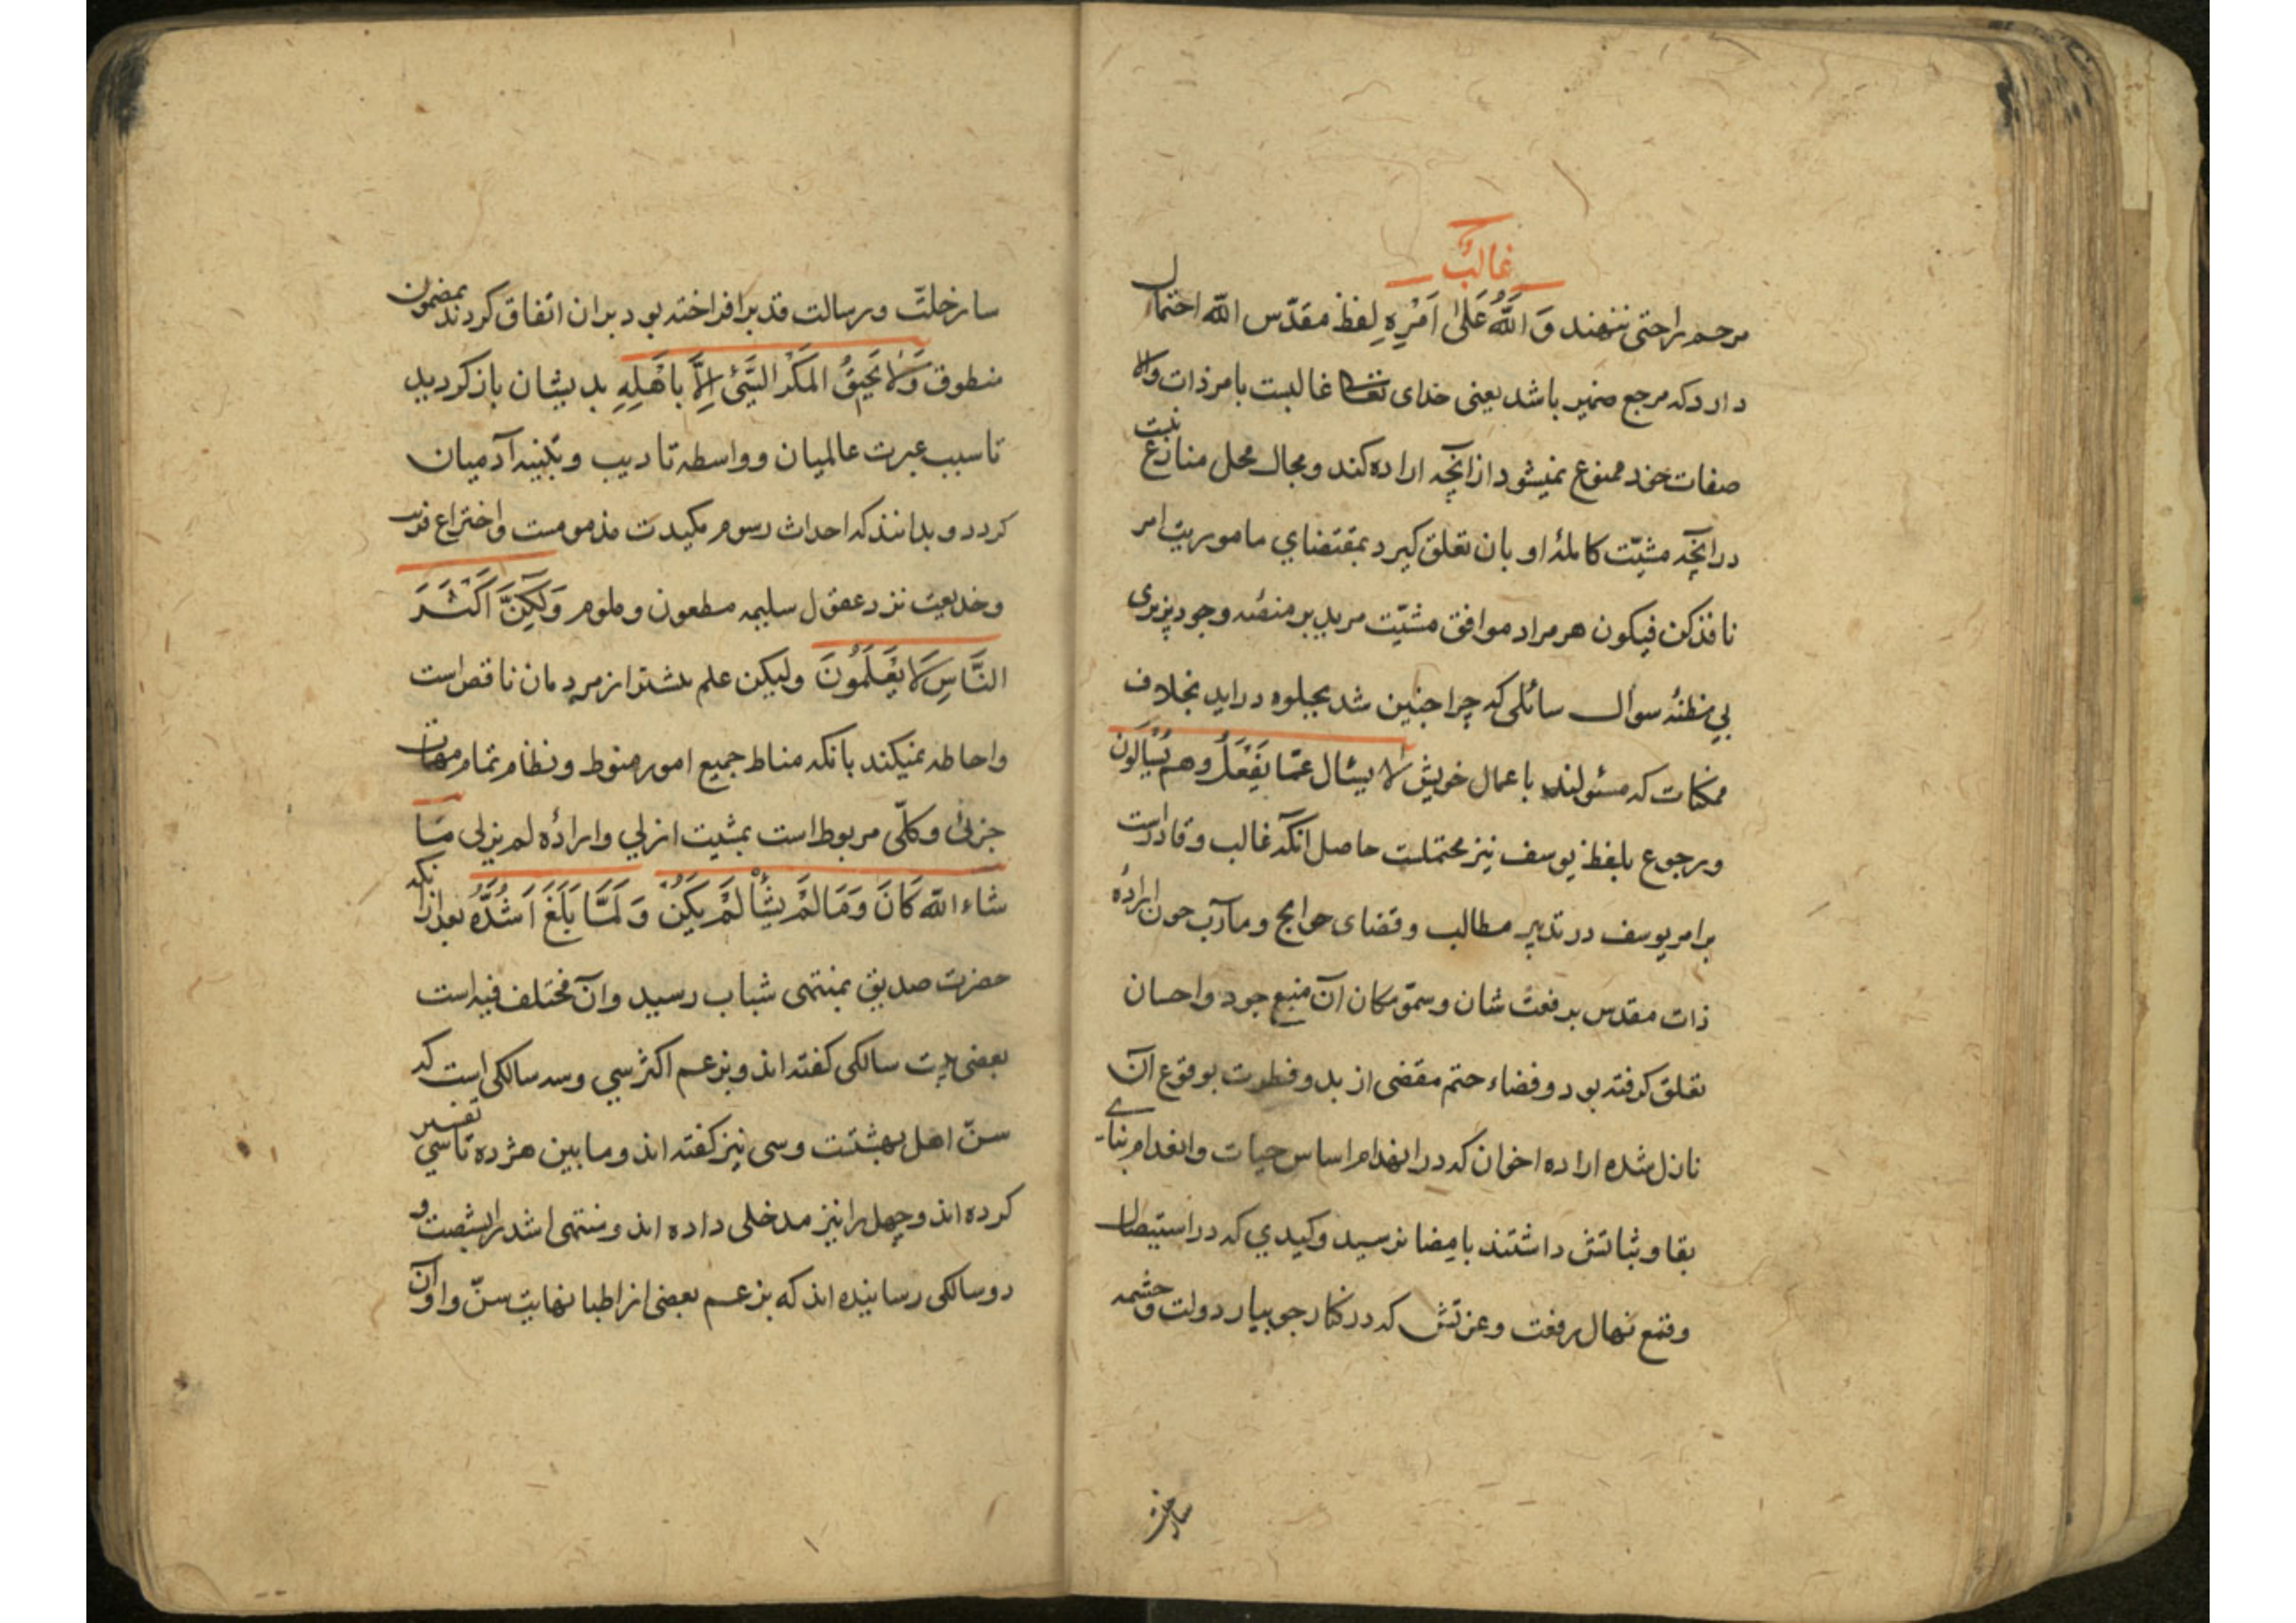 غالبٌ
مرحم راحتی ننهند وَاللّٰهُ عَلیٰ اَمْرِهِ لفظ مقدّس اللّه احتمال
دارد که مرجع ضمیر باشد یعنی خدای تعالی غالبست بامر ذات والا
صفات خود ممنوع نمیشود ازانچه اراده کند ومجال محل منازع نیست
درانچه مشیّت کاملهٔ او بان تعلق کیرد بمقتضاي ماموریت امر
نافذ کن فیکون هر مراد موافق مشیّت مرید بر منصّه وجود پزیری
بي مظنهٔ سوال سائلی که چرا چنین شد بجلوه دراید بخلاف
ممکنات که مسئولند باعمال خویش لا یسئال عمّا یَفْعَلُ وهم یُسْئالُونَ
ورجوع بلفظ یوسف نیز محتملست حاصل انکه غالب وقادر است
بر امر یوسف در تدبیر مطالب وقضای حوایج ومآرب چون ارادهٔ
ذات مقدس برفعت شان وسموّ مکان آن منبع جود واحسان
تعلق کرفته بود وقضاء حتم مقضی از بدو فطرت بوقوع آن
نازل شده اراده اخوان که در انهدام اساس حیات وانعدام بناے
بقا وثباتش داشتند بامضا نرسید وکیدي که در استیصال
وقمع نهال رفعت وعزتش که در کنار جویبار دولت وچشمه
سار خلّت
سار خلّت ورسالت قد برافراخته بود بران اتفاق کردند بمضمون
منطوق وَلا یَحِیقُ المَکْر السَّیِّئُ اِلاَّ بِاَهْلِهِ بدیشان باز کردید
تا سبب عبرت عالمیان وواسطه تادیب وتنبیه آدمیان
کردد وبدانند که احداث رسوم مکیدت مذمومست واختراع فریب
وخدیعت نزد عقول سلیمه مطعون وملوم وَلٰکِنَّ اَکْثَرَ
النَّاسِ لَا یَعْلَمُونَ ولیکن علم بیشتر از مردمان ناقص است
واحاطه نمیکند بانکه مناط جمیع امور منوط ونظام تمام مهمات
جزئی وکلّی مربوط است بمشیت ازلي وارادهٔ لم یزلی مَا
شاء اللّه کَانَ وَمَا لَمْ یَشَأْ لَمْ یَکُنْ وَلَمَّا بَلَغَ اَشُدَّهُ بعد ازانکه
حضرت صدیق بمنتهی شباب رسید وآن مختلف فیه است
بعضی بیست سالکی کفته اند وبزعم اکثر سي وسه سالکی است که
سنّ اهل بهشتست وسی نیز کفته اند وما بین هژده تا سي تفسیر
کرده اند وچهل را نیز مدخلی داده اند ومنتهی اشد را بشصت و
دو سالکی رسانیده اند که بزعم بعضی از اطبا نهایت سنّ واوان